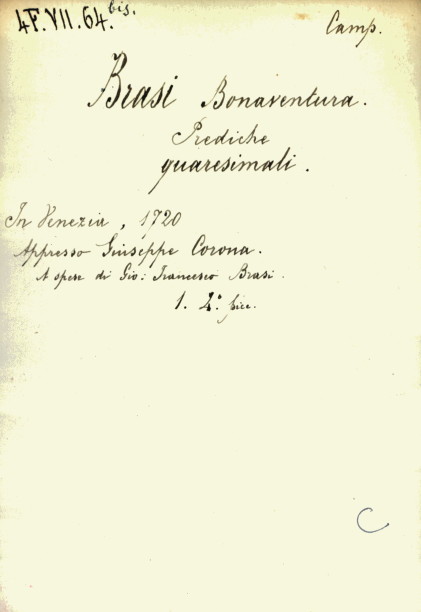 4F.VII.64.bis.
Camp.
Brasi Bonaventura.
Prediche
quaresimali.
In Venezia, 1720
Appresso Giuseppe Corona.
A spese di Gio: Francesco Brasi.
1. 4.º picc.
C